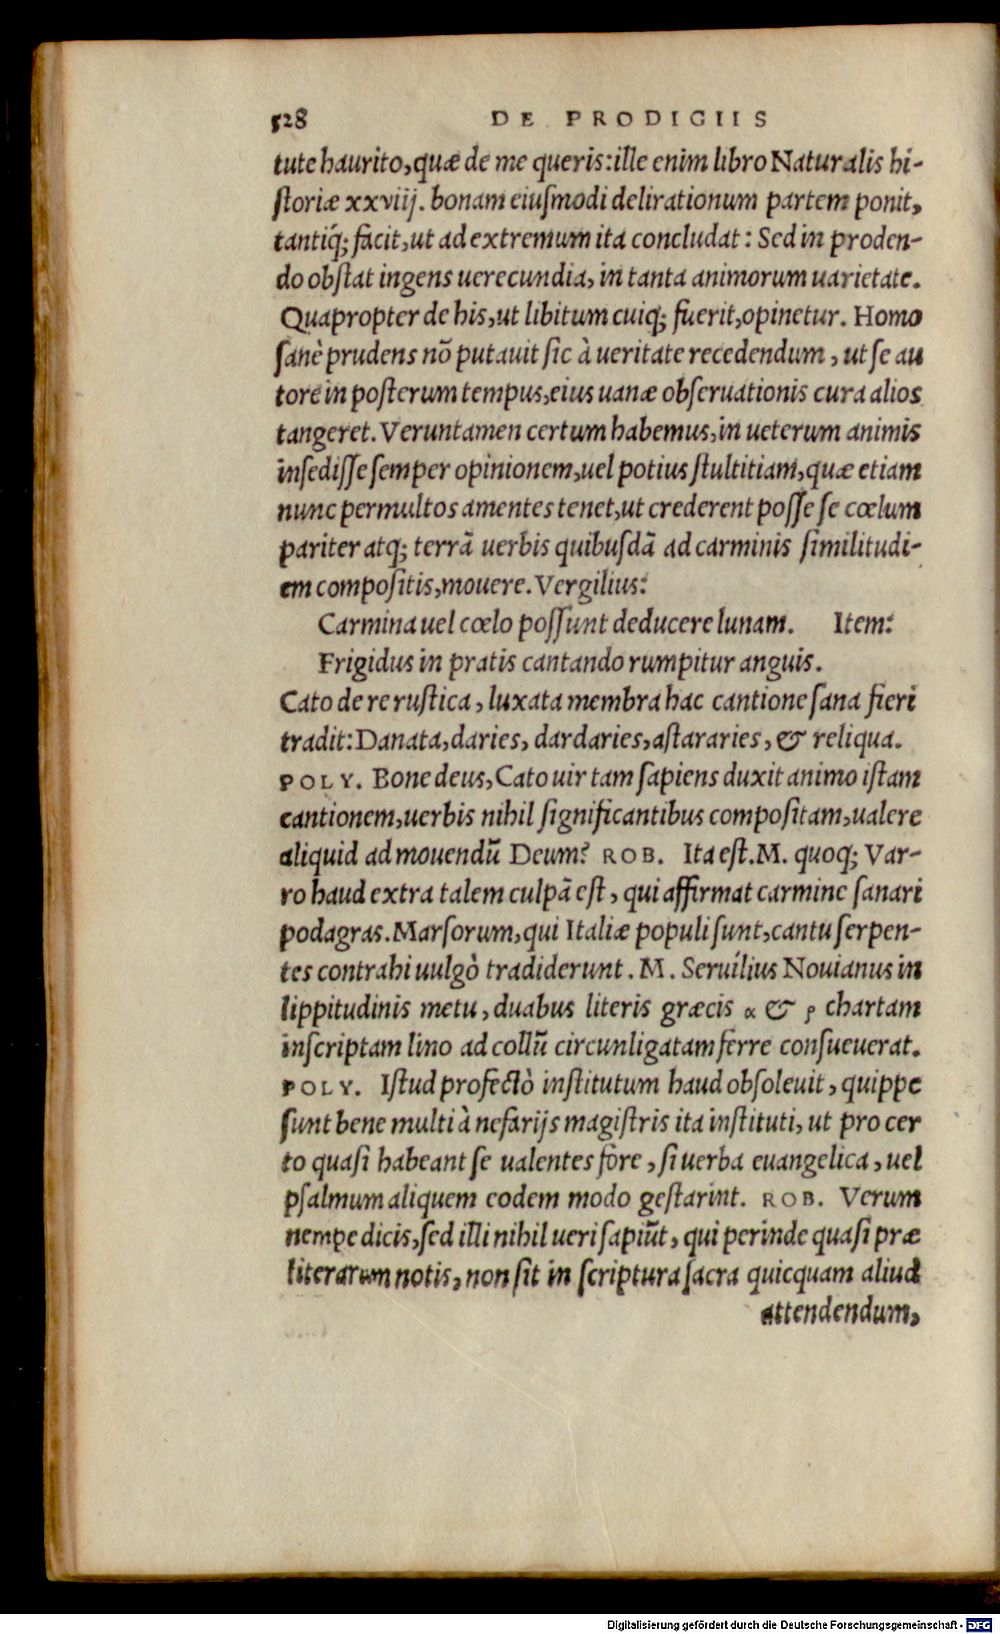 528 DE PRODIGIIS
tute haurito, quæ de me queris: ille enim libro Naturalis hi-
ſtoriæ xxviij. bonam eiuſmodi delirationum partem ponit,
tantiq; facit, ut ad extremum ita concludat: Sed in proden-
do obſtat ingens uerecundia, in tanta animorum uarietate.
Quapropter de his, ut libitum cuiq; fuerit, opinetur. Homo
ſanè prudens nō putauit ſic à ueritate recedendum, ut ſe au
tore in poſterum tempus, eius uanæ obſeruationis cura alios
tangeret. Veruntamen certum habemus, in ueterum animis
inſediſſe ſemper opinionem, uel potius ſtultitiam, quæ etiam
nunc permultos amentes tenet, ut crederent poſſe ſe cœlum
pariter atq; terrā uerbis quibuſdā ad carminis ſimilitudi-
em compoſitis, mouere. Vergilius:
Carmina uel cœlo poſſunt deducere lunam. Item:
Frigidus in pratis cantando rumpitur anguis.
Cato de re ruſtica, luxata membra hac cantione ſana fieri
tradit: Danata, daries, dardaries, aſtararies, & reliqua.
POLY. Bone deus, Cato uir tam ſapiens duxit animo iſtam
cantionem, uerbis nihil ſignificantibus compoſitam, ualere
aliquid ad mouendū Deum? ROB. Ita eſt. M. quoq; Var-
ro haud extra talem culpā eſt, qui affirmat carmine ſanari
podagras. Marſorum, qui Italiæ populi ſunt, cantu ſerpen-
tes contrahi uulgò tradiderunt. M. Seruilius Nouianus in
lippitudinis metu, duabus literis græcis α & ρ chartam
inſcriptam lino ad collū circunligatam ferre conſueuerat.
POLY. Iſtud profectò inſtitutum haud obſoleuit, quippe
ſunt bene multi à nefarijs magiſtris ita inſtituti, ut pro cer
to quaſi habeant ſe ualentes fore, ſi uerba euangelica, uel
pſalmum aliquem eodem modo geſtarint. ROB. Verum
nempe dicis, ſed illi nihil ueri ſapiūt, qui perinde quaſi præ
literarum notis, non ſit in ſcriptura ſacra quicquam aliud
attendendum,
Digitalisierung gefördert durch die Deutsche Forschungsgemeinschaft - DFG